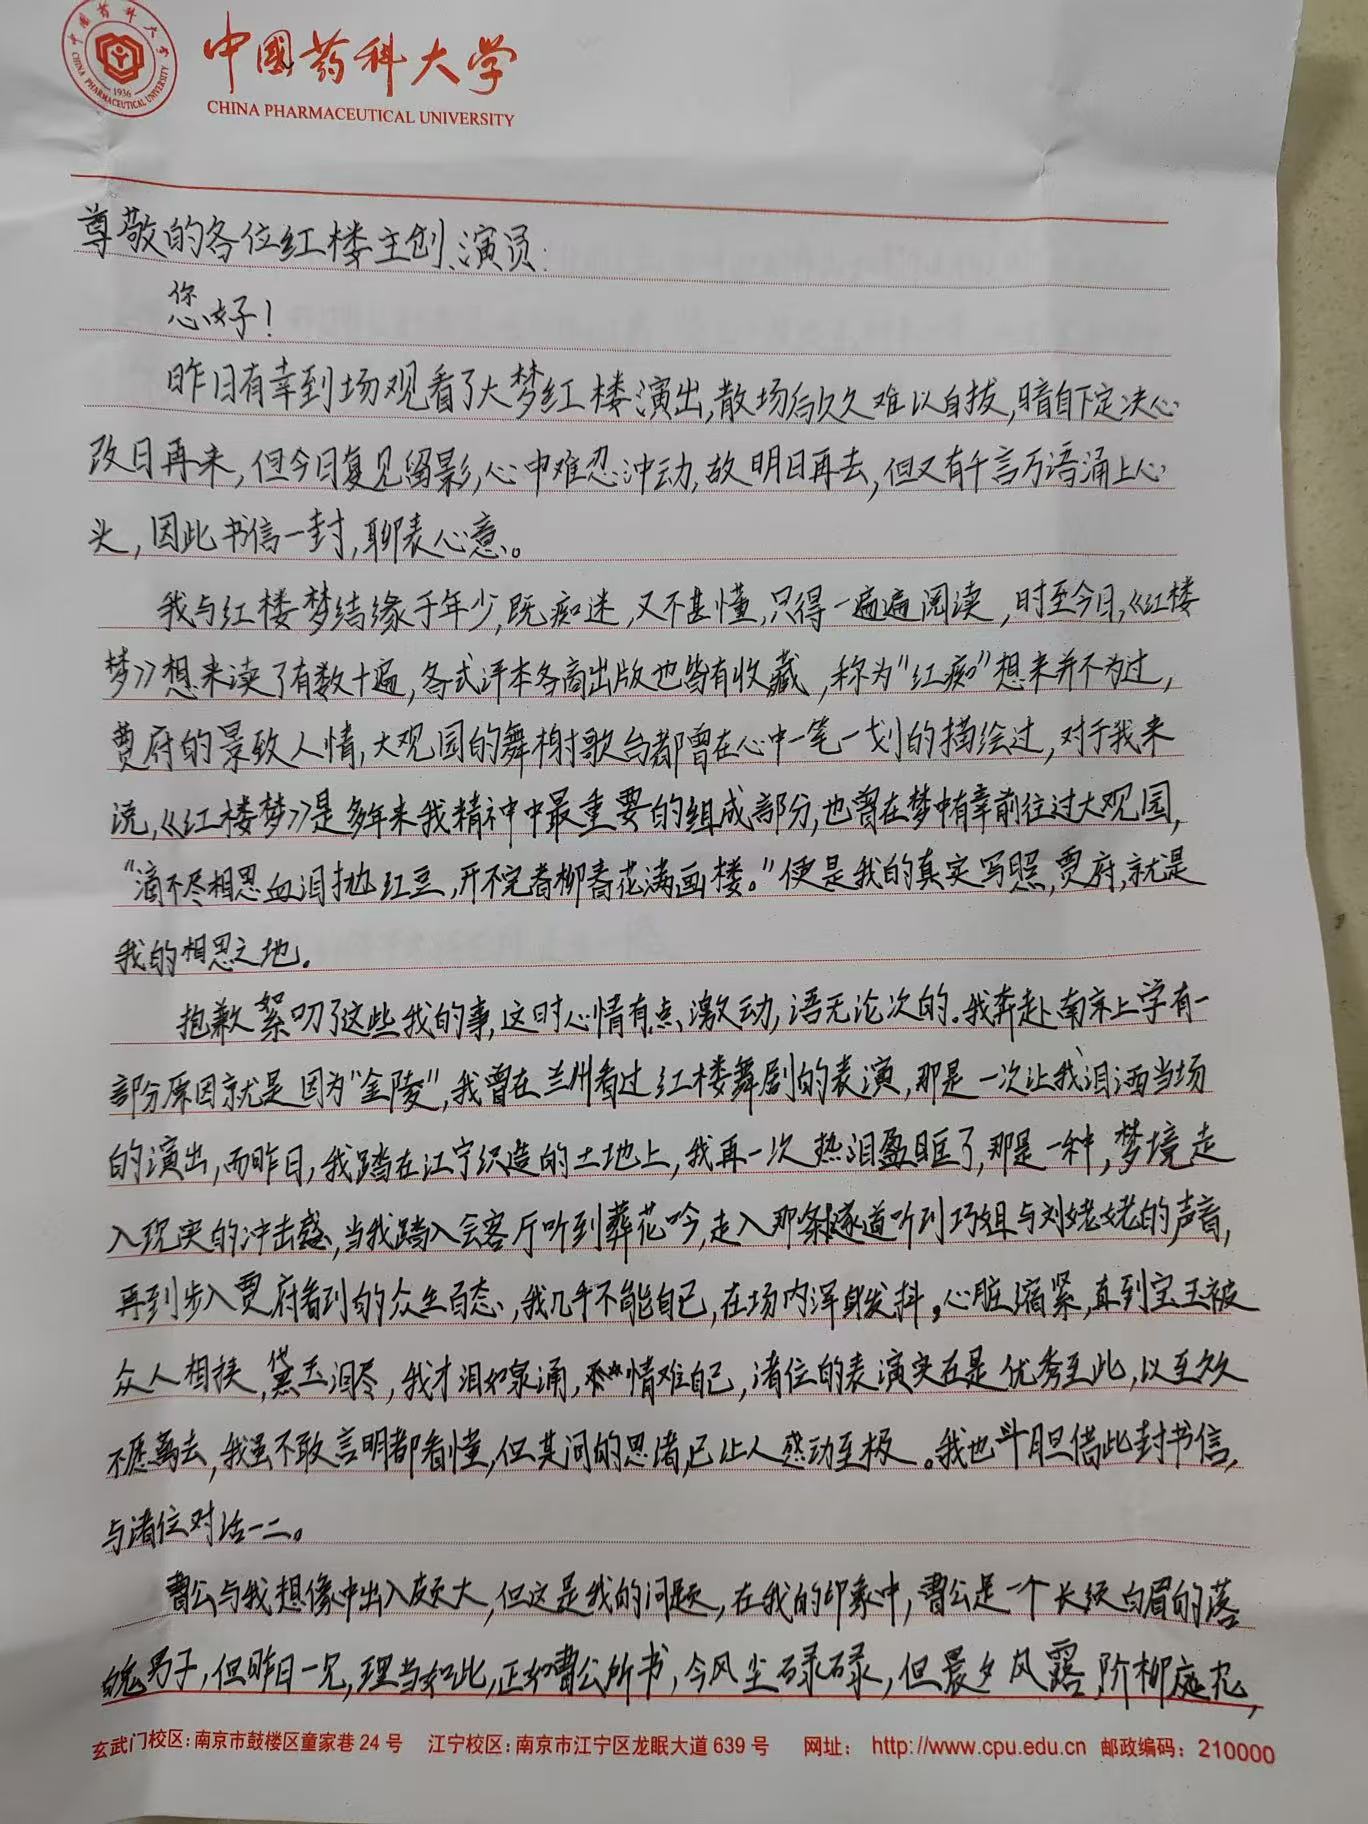 中国药科大学
CHINA PHARMACEUTICAL UNIVERSITY
中国药科大学
1936
CHINA PHARMACEUTICAL UNIVERSITY
尊敬的各位红楼主创、演员:
您好!
昨日有幸到场观看了大梦红楼演出,散场后久久难以自拔,暗自下定决心
改日再来,但今日复见留影,心中难忍冲动,故明日再去,但又有千言万语涌上心
头,因此书信一封,聊表心意。
我与红楼梦结缘于年少,既痴迷,又不甚懂,只得一遍遍阅读,时至今日,《红楼
梦》想来读了有数十遍,各式评本各商出版也皆有收藏,称为“红痴”想来并不为过,
贾府的景致人情,大观园的舞榭歌台都曾在心中一笔一划的描绘过,对于我来
说,《红楼梦》是多年来我精神中最重要的组成部分,也曾在梦中有幸前往过大观园,
“滴不尽相思血泪抛红豆,开不完春柳春花满画楼。”便是我的真实写照,贾府,就是
我的相思之地。
抱歉絮叨了这些我的事,这时心情有点激动,语无论次的。我奔赴南京上学有一
部分原因就是因为“金陵”,我曾在兰州看过红楼舞剧的表演,那是一次让我泪洒当场
的演出,而昨日,我踏在江宁织造的土地上,我再一次热泪盈眶了,那是一种,梦境走
入现实的冲击感,当我踏入会客厅听到葬花吟,走入那条隧道听到巧姐与刘姥姥的声音,
再到步入贾府看到的众生百态,我几乎不能自已,在场内浑身发抖,心脏缩紧,直到宝玉被
众人相挟,黛玉泪尽,我才泪如泉涌,情难自已,诸位的表演实在是优秀至此,以至久久
不愿离去,我虽不敢言明都看懂,但其间的思绪,已让人感动至极。我也斗胆借此封书信,
与诸位对话一二。
曹公与我想像中出入颇大,但这是我的问题,在我的印象中,曹公是一个长须白眉的落
魄男子,但昨日一见,理当如此,正如曹公所书,今风尘碌碌,但晨夕风露,阶柳庭花,
玄武门校区:南京市鼓楼区童家巷24号 江宁校区:南京市江宁区龙眠大道639号 网址: http://www.cpu.edu.cn 邮政编码:210000